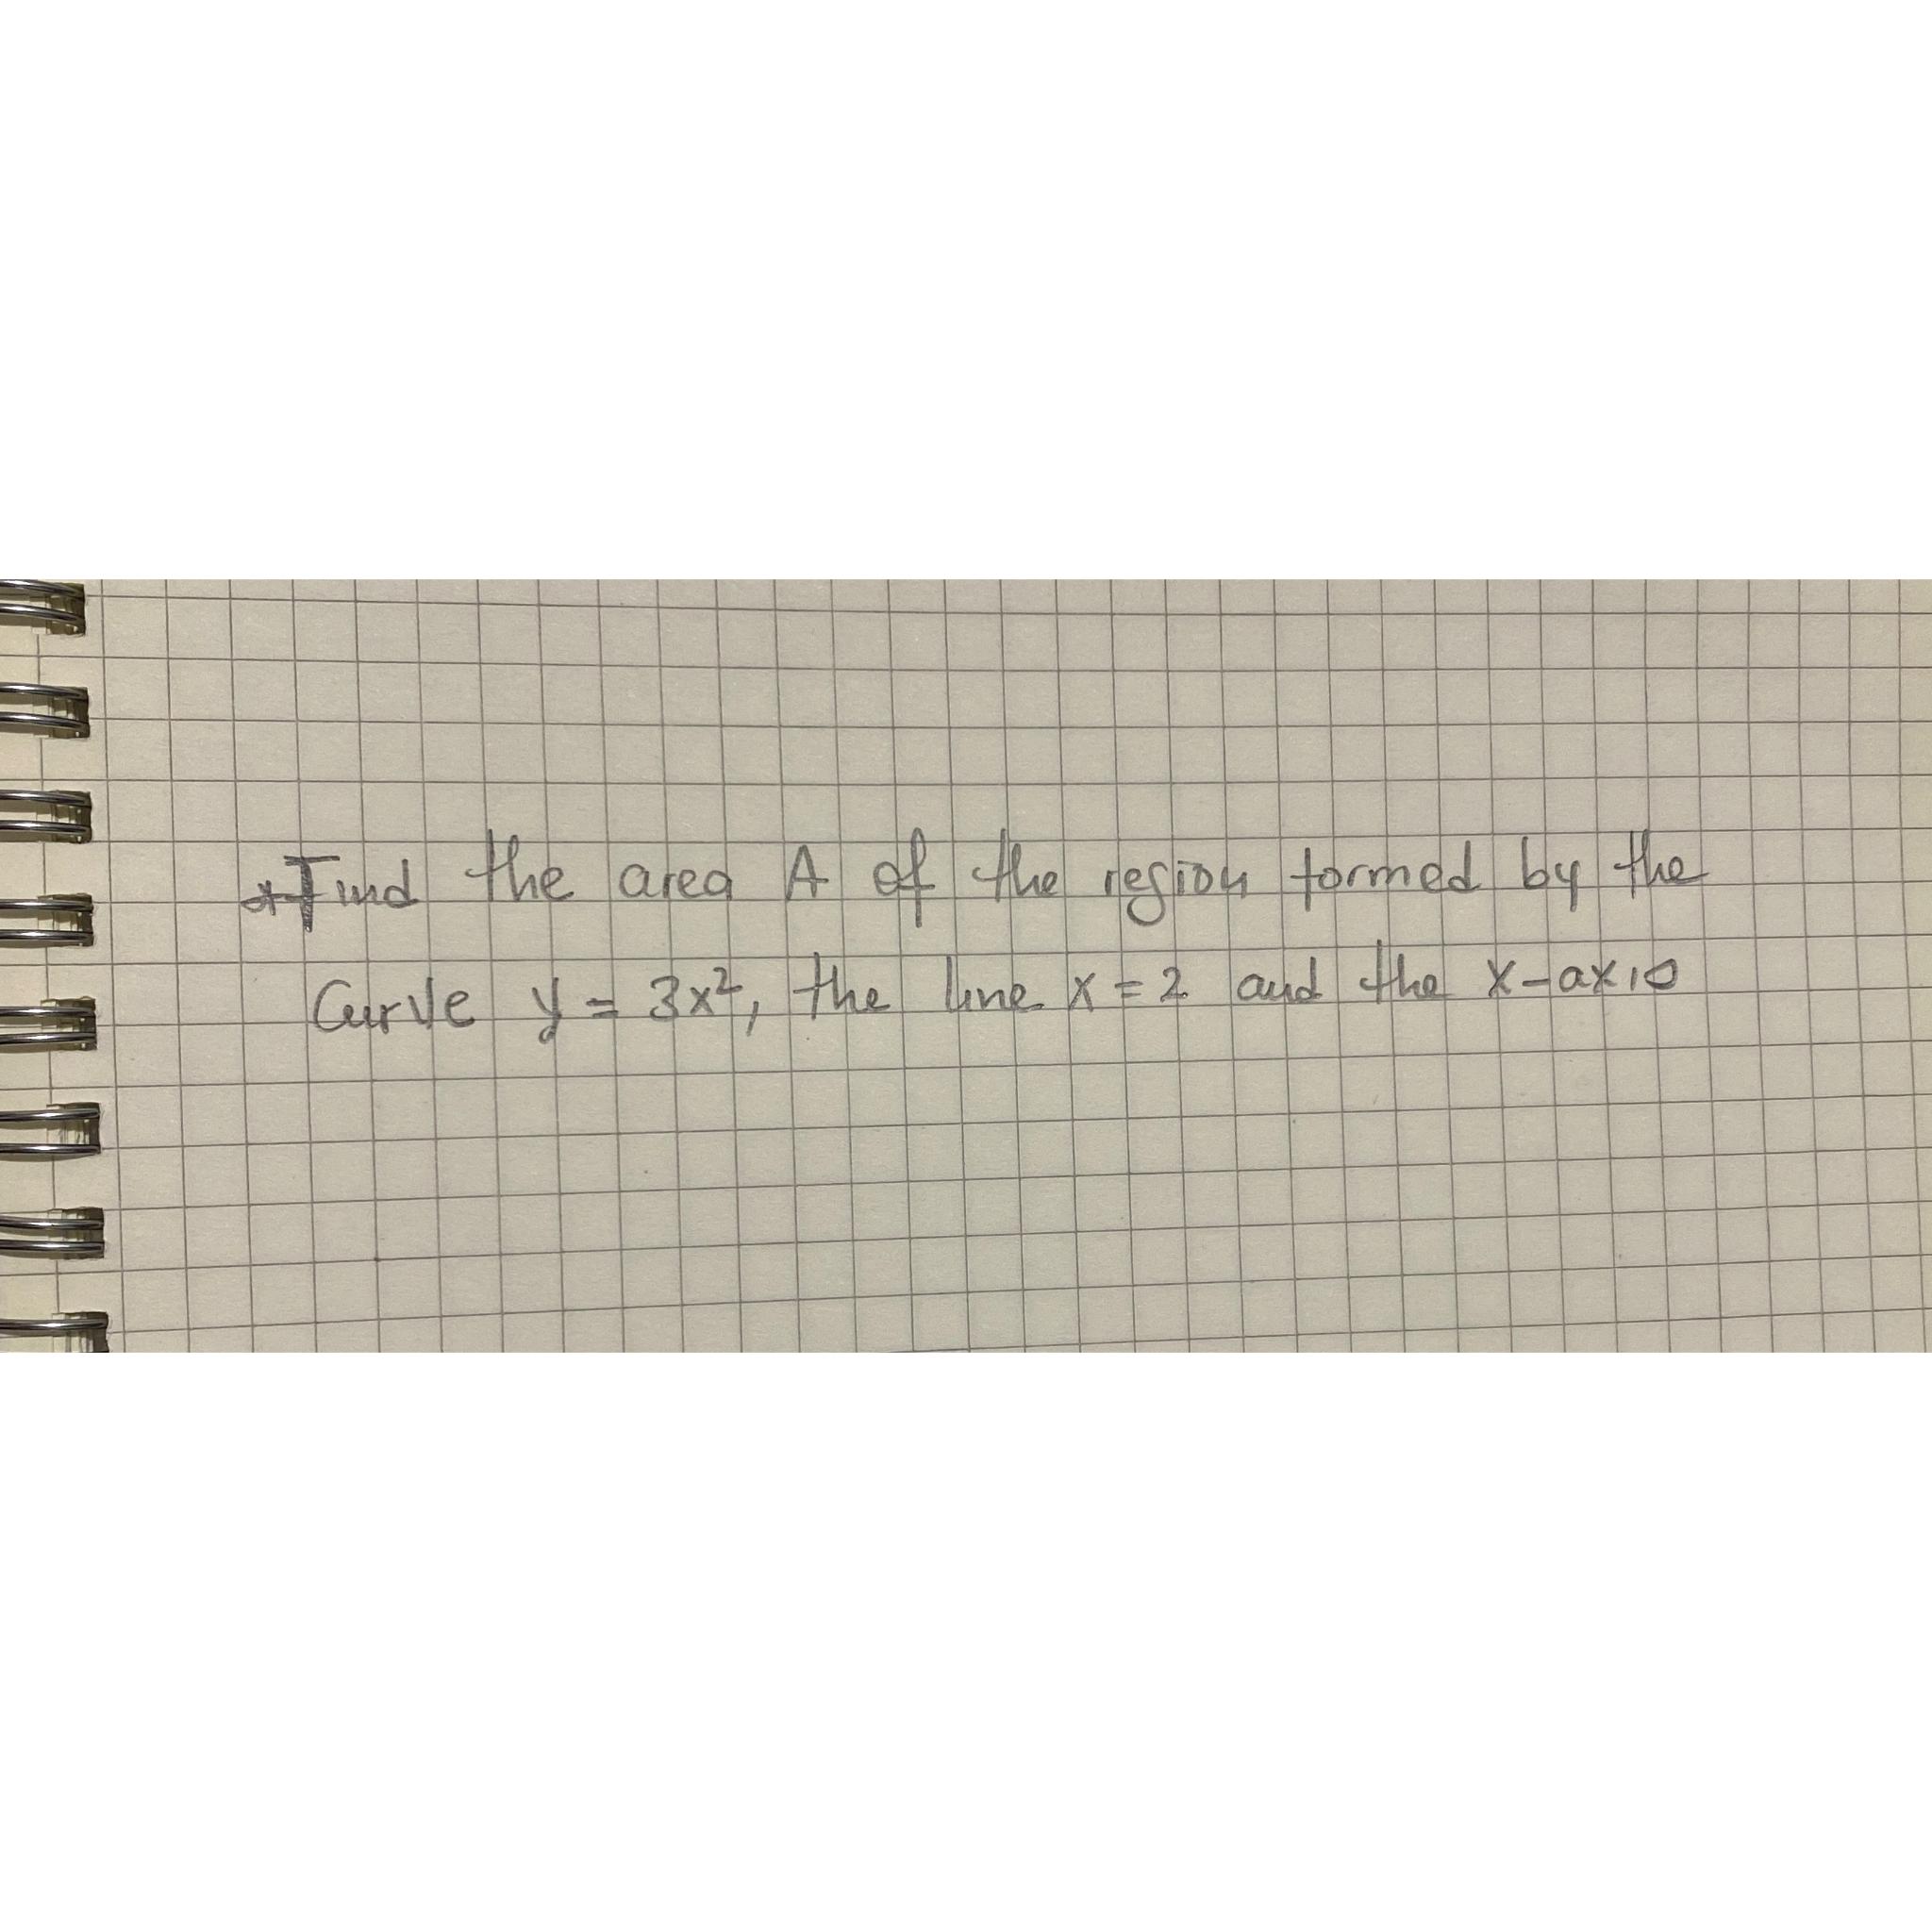 *Find the area A of the region formed by the
Curve y = 3x², the line x = 2 and the x-axis